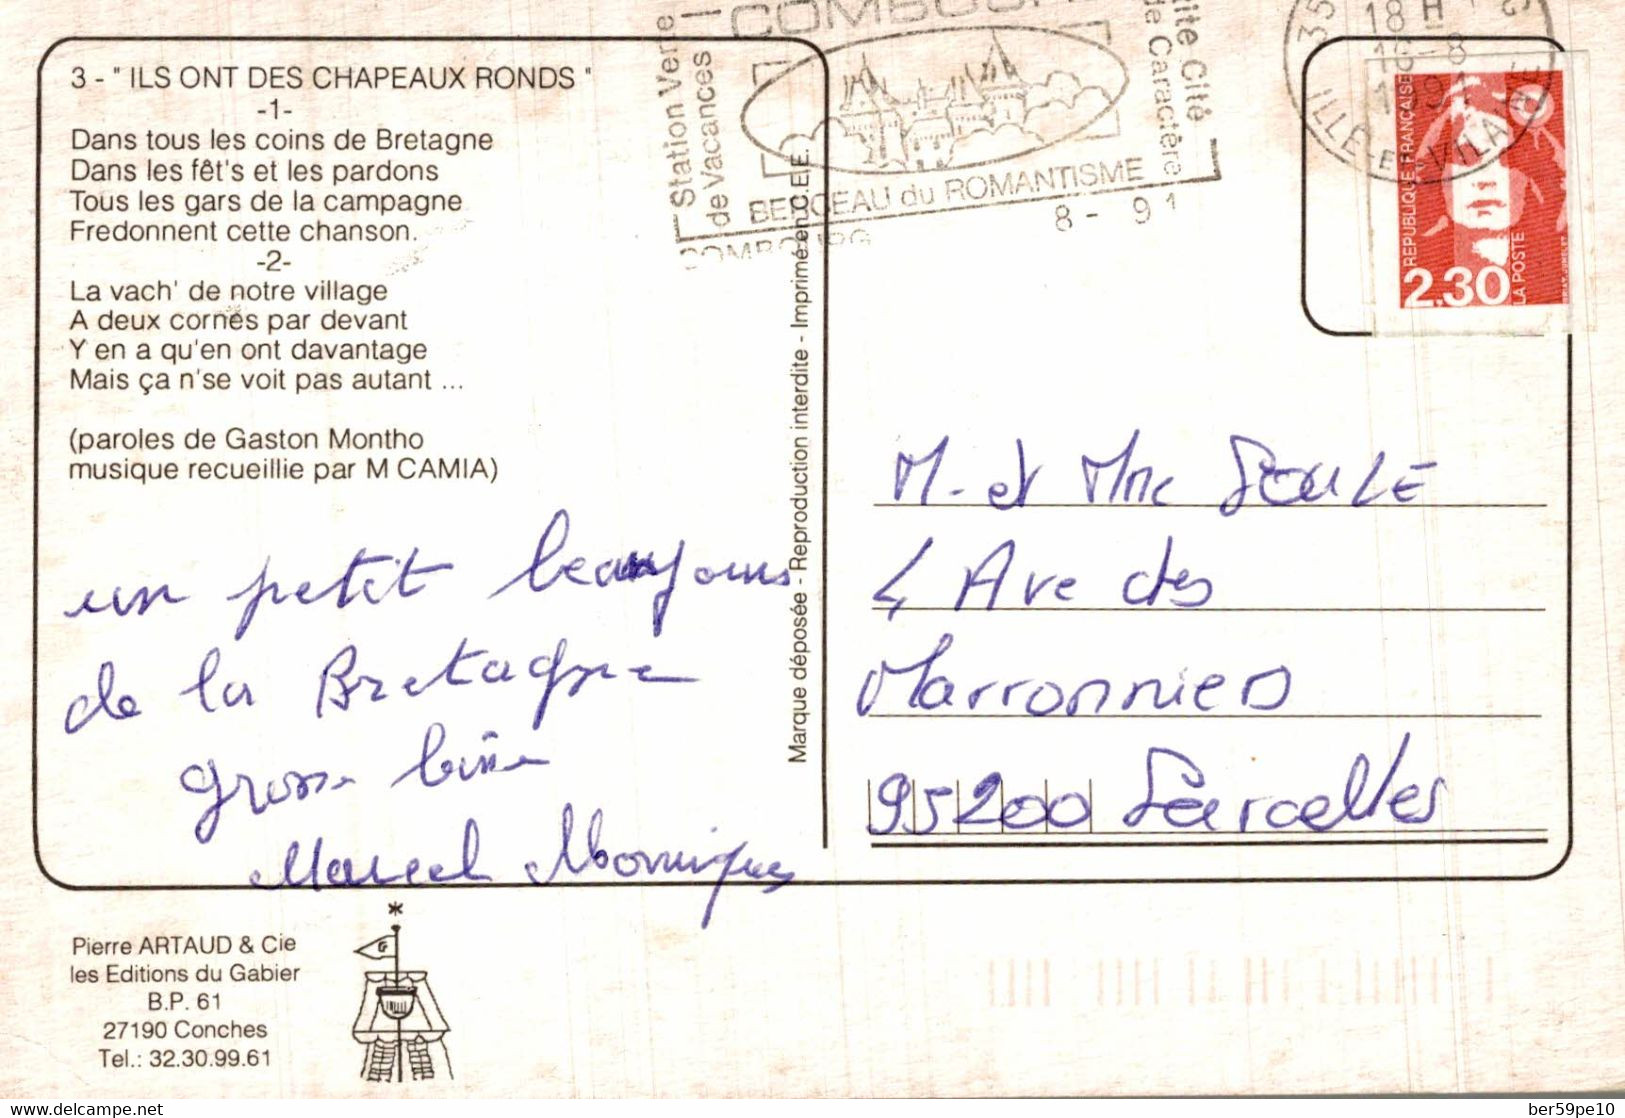 3 - " ILS ONT DES CHAPEAUX RONDS "
-1-
Dans tous les coins de Bretagne
Dans les fêt's et les pardons
Tous les gars de la campagne
Fredonnent cette chanson.
-2-
La vach' de notre village
A deux cornes par devant
Y en a qu'en ont davantage
Mais ça n'se voit pas autant ...
(paroles de Gaston Montho
musique recueillie par M CAMIA)
un petit
de la Bretagne
grosse bise
Marcel Monique
Pierre ARTAUD & Cie
les Editions du Gabier
B.P. 61
27190 Conches
Tel.: 32.30.99.61
Marque déposée - Reproduction interdite - Imprimé en C.E.E.
Station Verte
de Vacances
COMBOURG
BERCEAU du ROMANTISME
Petite Cité
de Caractère
COMBOURG
8 - 91
35
18 H
16-8
1991
ILLE-ET-VILAINE
REPUBLIQUE FRANÇAISE
2.30
LA POSTE
M. et Mme SOULE
4 Ave des
Marronniers
95200 Sarcelles
ber59pe10